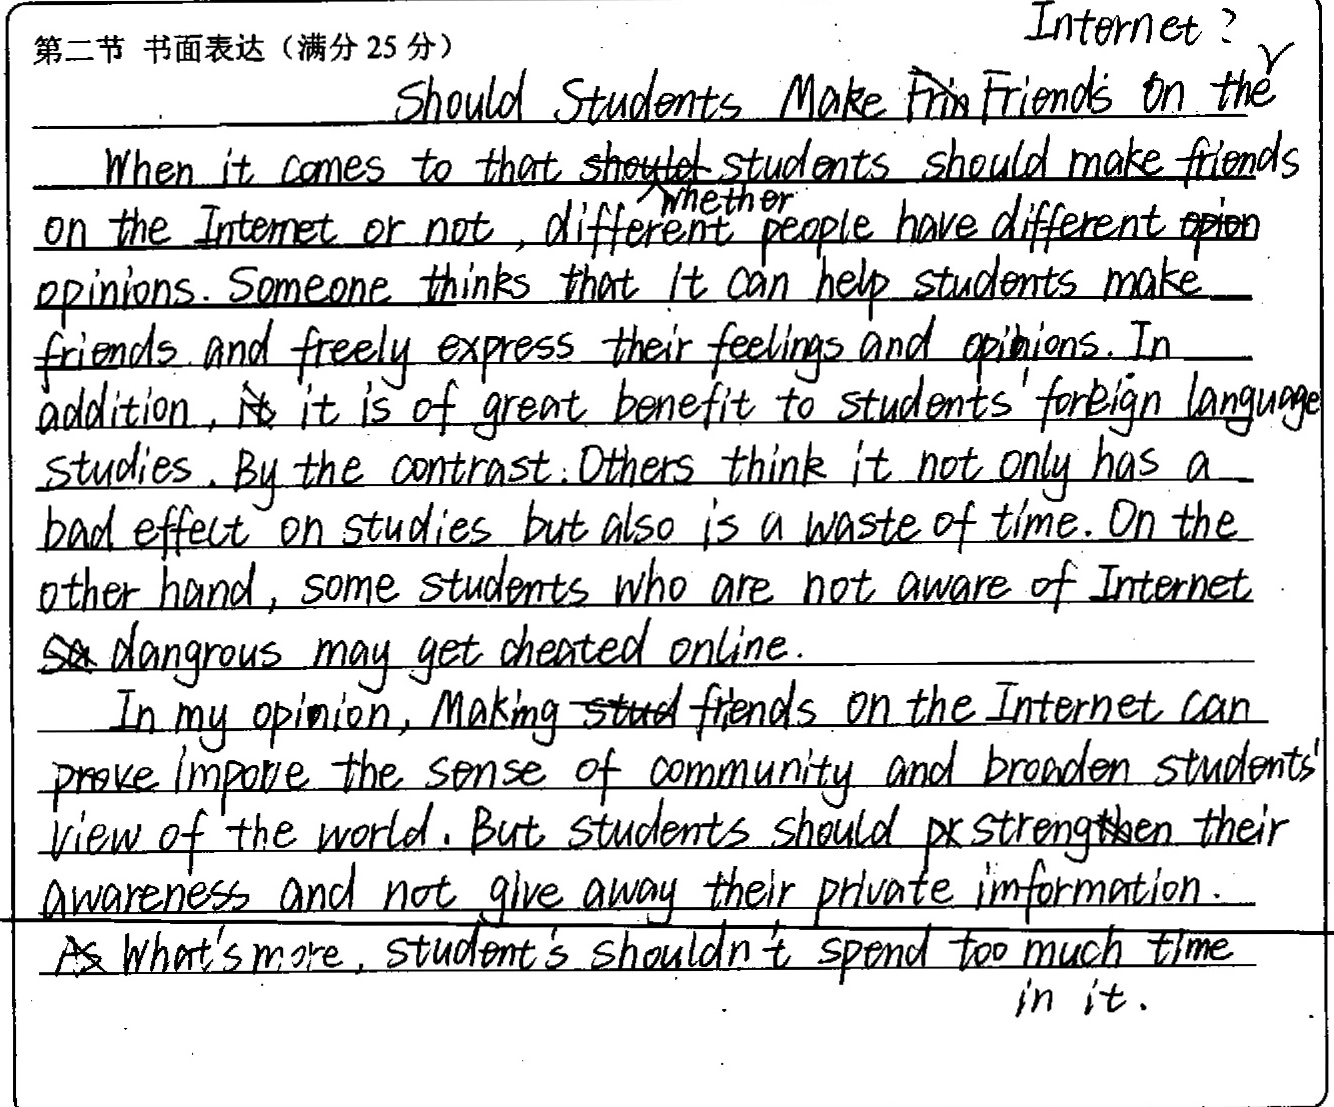 第二节 书面表达（满分 25 分）
Should Students Make Friends On the Internet?
When it comes to that whether students should make friends
on the Internet or not, different people have different
opinions. Someone thinks that it can help students make
friends and freely express their feelings and opinions. In
addition, it is of great benefit to students' foreign language
studies. By the contrast. Others think it not only has a
bad effect on studies but also is a waste of time. On the
other hand, some students who are not aware of Internet
dangrous may get cheated online.
In my opinion, Making friends on the Internet can
imporve the sense of community and broaden students'
view of the world. But students should strengthen their
awareness and not give away their private imformation.
What's more, student's shouldn't spend too much time
in it.